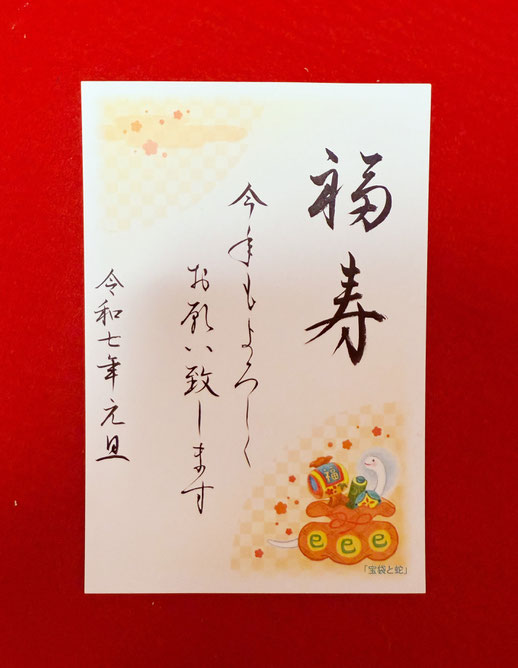 福寿
今年もよろしく
お願い致します
令和七年元旦
福
巳巳巳
「宝袋と蛇」